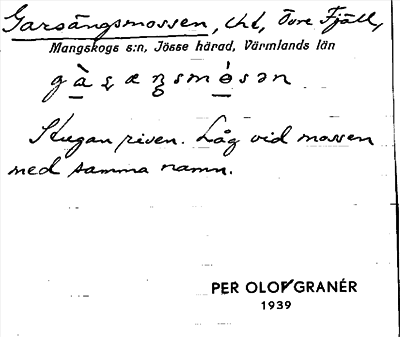 Garsängsmossen, Uht, Övre Fjäll,
Mangskogs s:n, Jösse härad, Värmlands län
Stugan riven. Låg vid mossen
med samma namn.
PER OLOF GRANÉR
1939